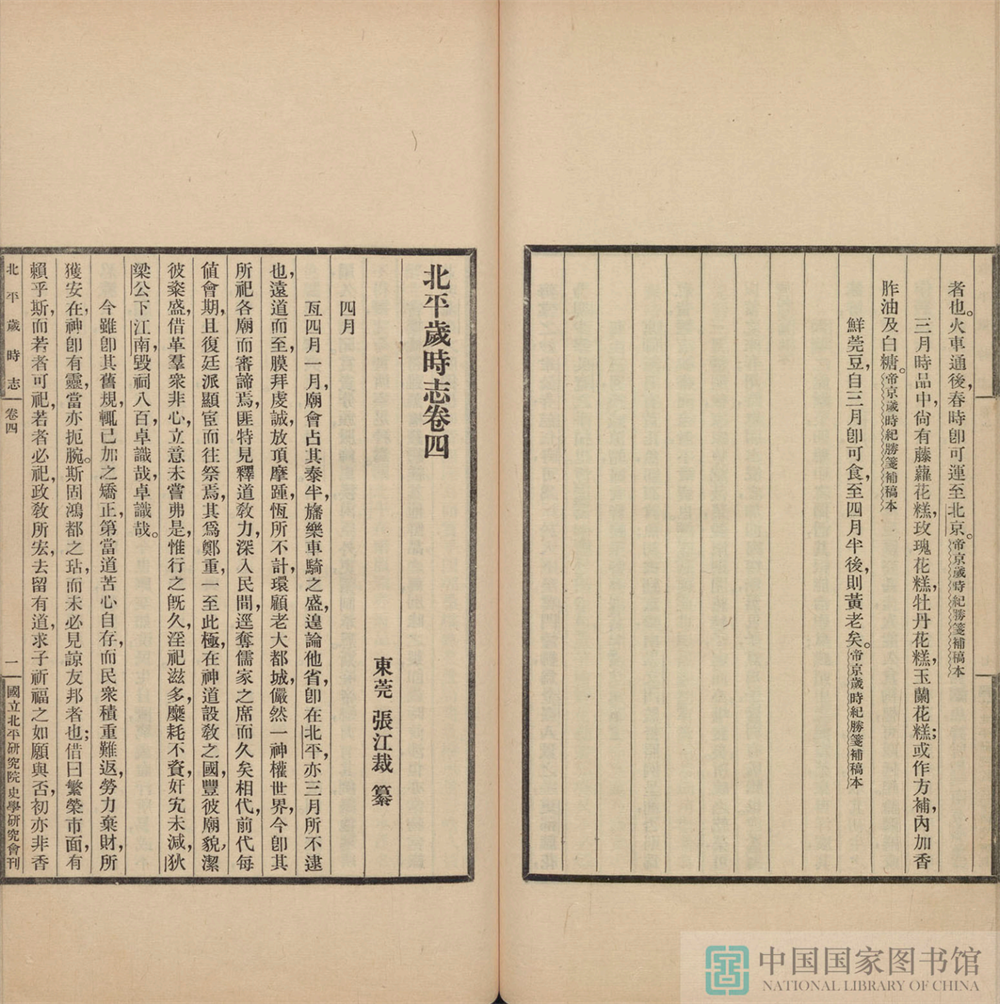 者也。火車通後，春時卽可運至北京。帝京歲時紀勝箋補稿本
三月時品中尙有藤蘿花糕，玫瑰花糕，牡丹花糕，玉蘭花糕；或作方補，內加香
胙油及白糖。帝京歲時紀勝箋補稿本
鮮莞豆，自三月卽可食，至四月半後，則黃老矣。帝京歲時紀勝箋補稿本
北平歲時志卷四
東莞 張江裁 纂
四月
亙四月一月，廟會占其泰半，旛樂車騎之盛，遑論他省，卽在北平，亦三月所不逮
也，遠道而至，膜拜虔誠，放項摩踵，恆所不計，環顧老大都城，儼然一神權世界，今卽其
所祀各廟而審諦焉，匪特見釋道敎力，深入民間，逕奪儒家之席而久矣相代，前代每
値會期，且復廷派顯宦而往祭焉，其爲鄭重，一至此極，在神道設敎之國，豐彼廟貌，潔
彼粢盛，借革羣衆非心，立意未嘗弗是，惟行之旣久，淫祀滋多，糜耗不資，奸宄未減，狄
梁公下江南，毀祠八百，卓識哉，卓識哉。
今雖卽其舊規，輒已加之矯正，第當道苦心自存，而民衆積重難返，勞力棄財，所
獲安在，神卽有靈，當亦扼腕。斯固鴻都之玷，而未必見諒友邦者也；借曰繁榮市面，有
賴乎斯，而若者可祀，若者必祀，政敎所宏，去留有道，求子祈福之如願與否，初亦非香
北平歲時志 卷四 一 國立北平研究院史學研究會刊
中国国家图书馆
NATIONAL LIBRARY OF CHINA